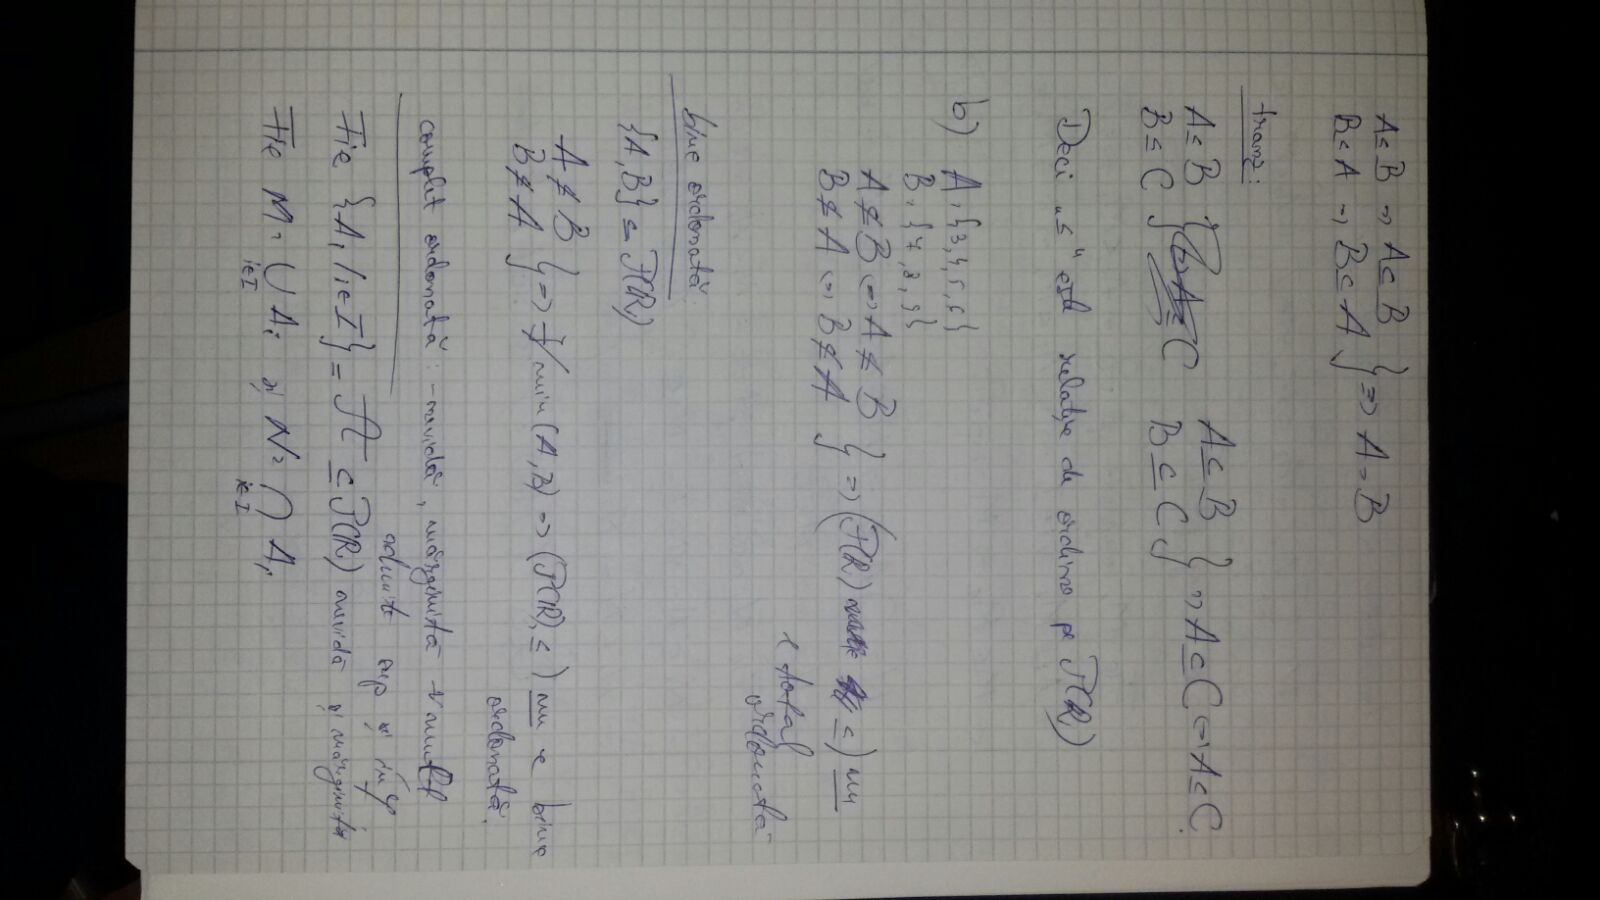 A ≤ B => A ⊆ B
B ≤ A => B ⊆ A } => A = B
tranz:
A ≤ B
B ≤ C }
A ⊆ B
B ⊆ C } => A ⊆ C <=> A ≤ C.
Deci „≤" este relație de ordine pe P(R)
b) A = {3,4,5,6}
B = {7,8,9}
A ≰ B <=> A ⊈ B
B ≰ A <=> B ⊈ A } => (P(R) ≤) nu
e total
ordonată
bine ordonată:
{A, B} ⊆ P(R)
A ≰ B
B ≰ A } => ∄ min (A, B) => (P(R), ≤) nu e bine
ordonată.
complet ordonată: - nevidă, mărginită
admite sup și inf
Fie {A_i | i∈I} = A ⊆ P(R) nevidă și mărginită
Fie M = ∪ A_i și N = ∩ A_i
i∈I i∈I